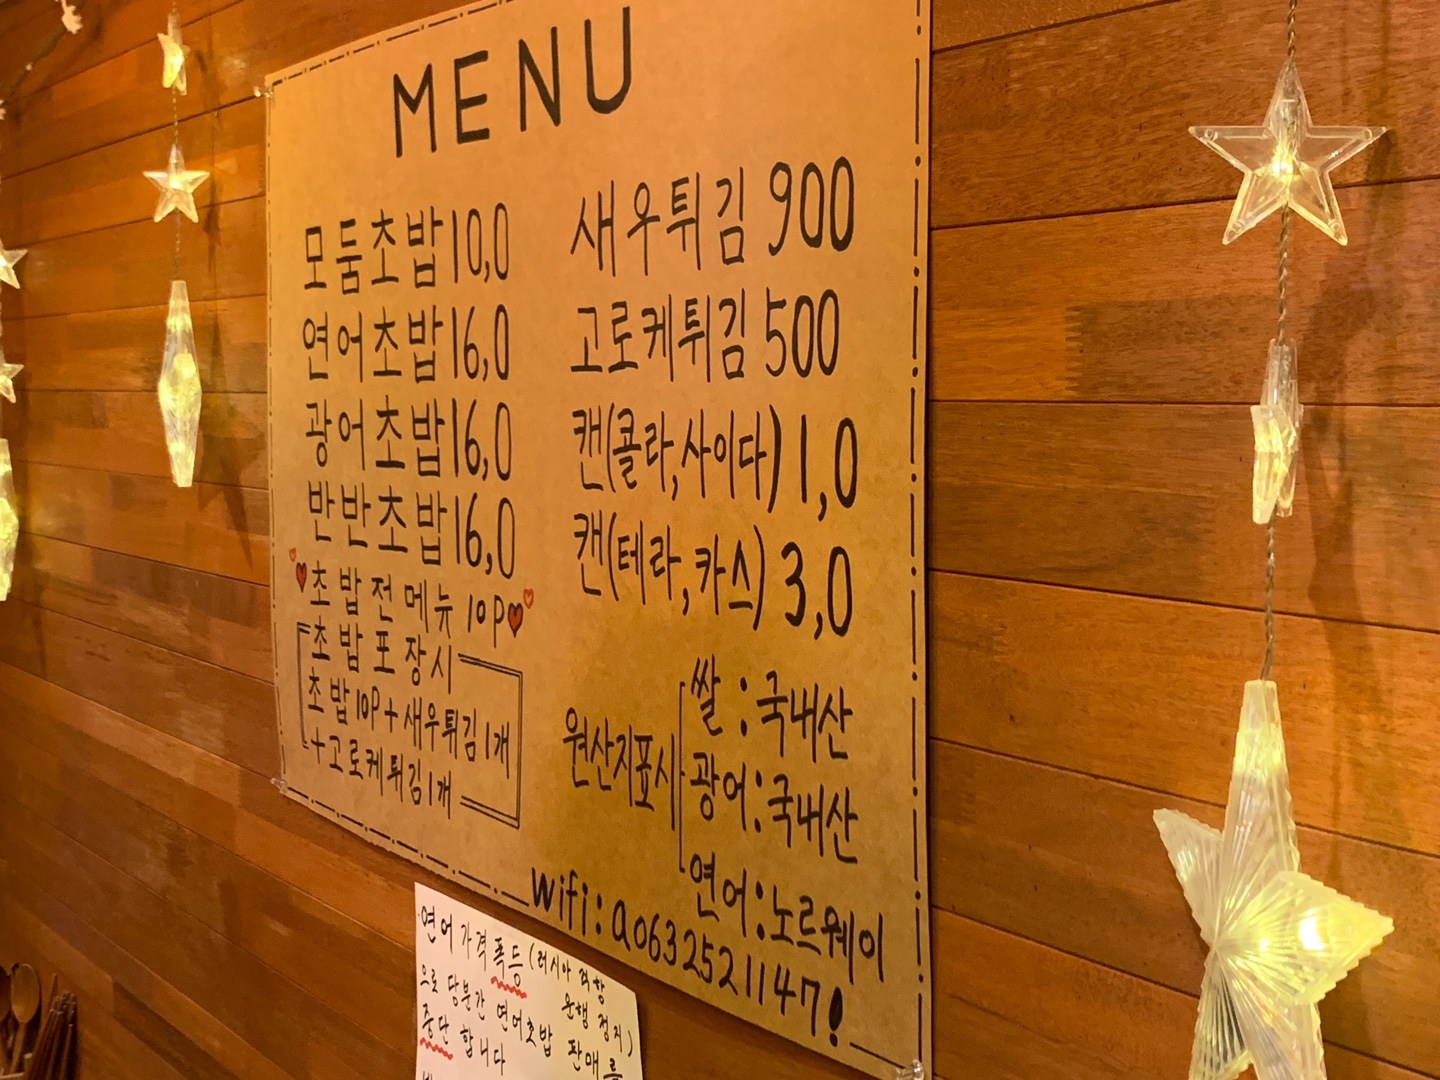 MENU
모둠초밥 10,0
연어초밥 16,0
광어초밥 16,0
반반초밥 16,0
초밥전메뉴 10P
초밥포장시
초밥10P+새우튀김1개
+고로케튀김1개
새우튀김 900
고로케튀김 500
캔(콜라,사이다) 1,0
캔(테라,카스) 3,0
원산지표시
쌀:국내산
광어:국내산
연어:노르웨이
wifi:a0632521147!
연어가격폭등(러시아
운행 정지)
으로 당분간 연어초밥 판매를
중단합니다